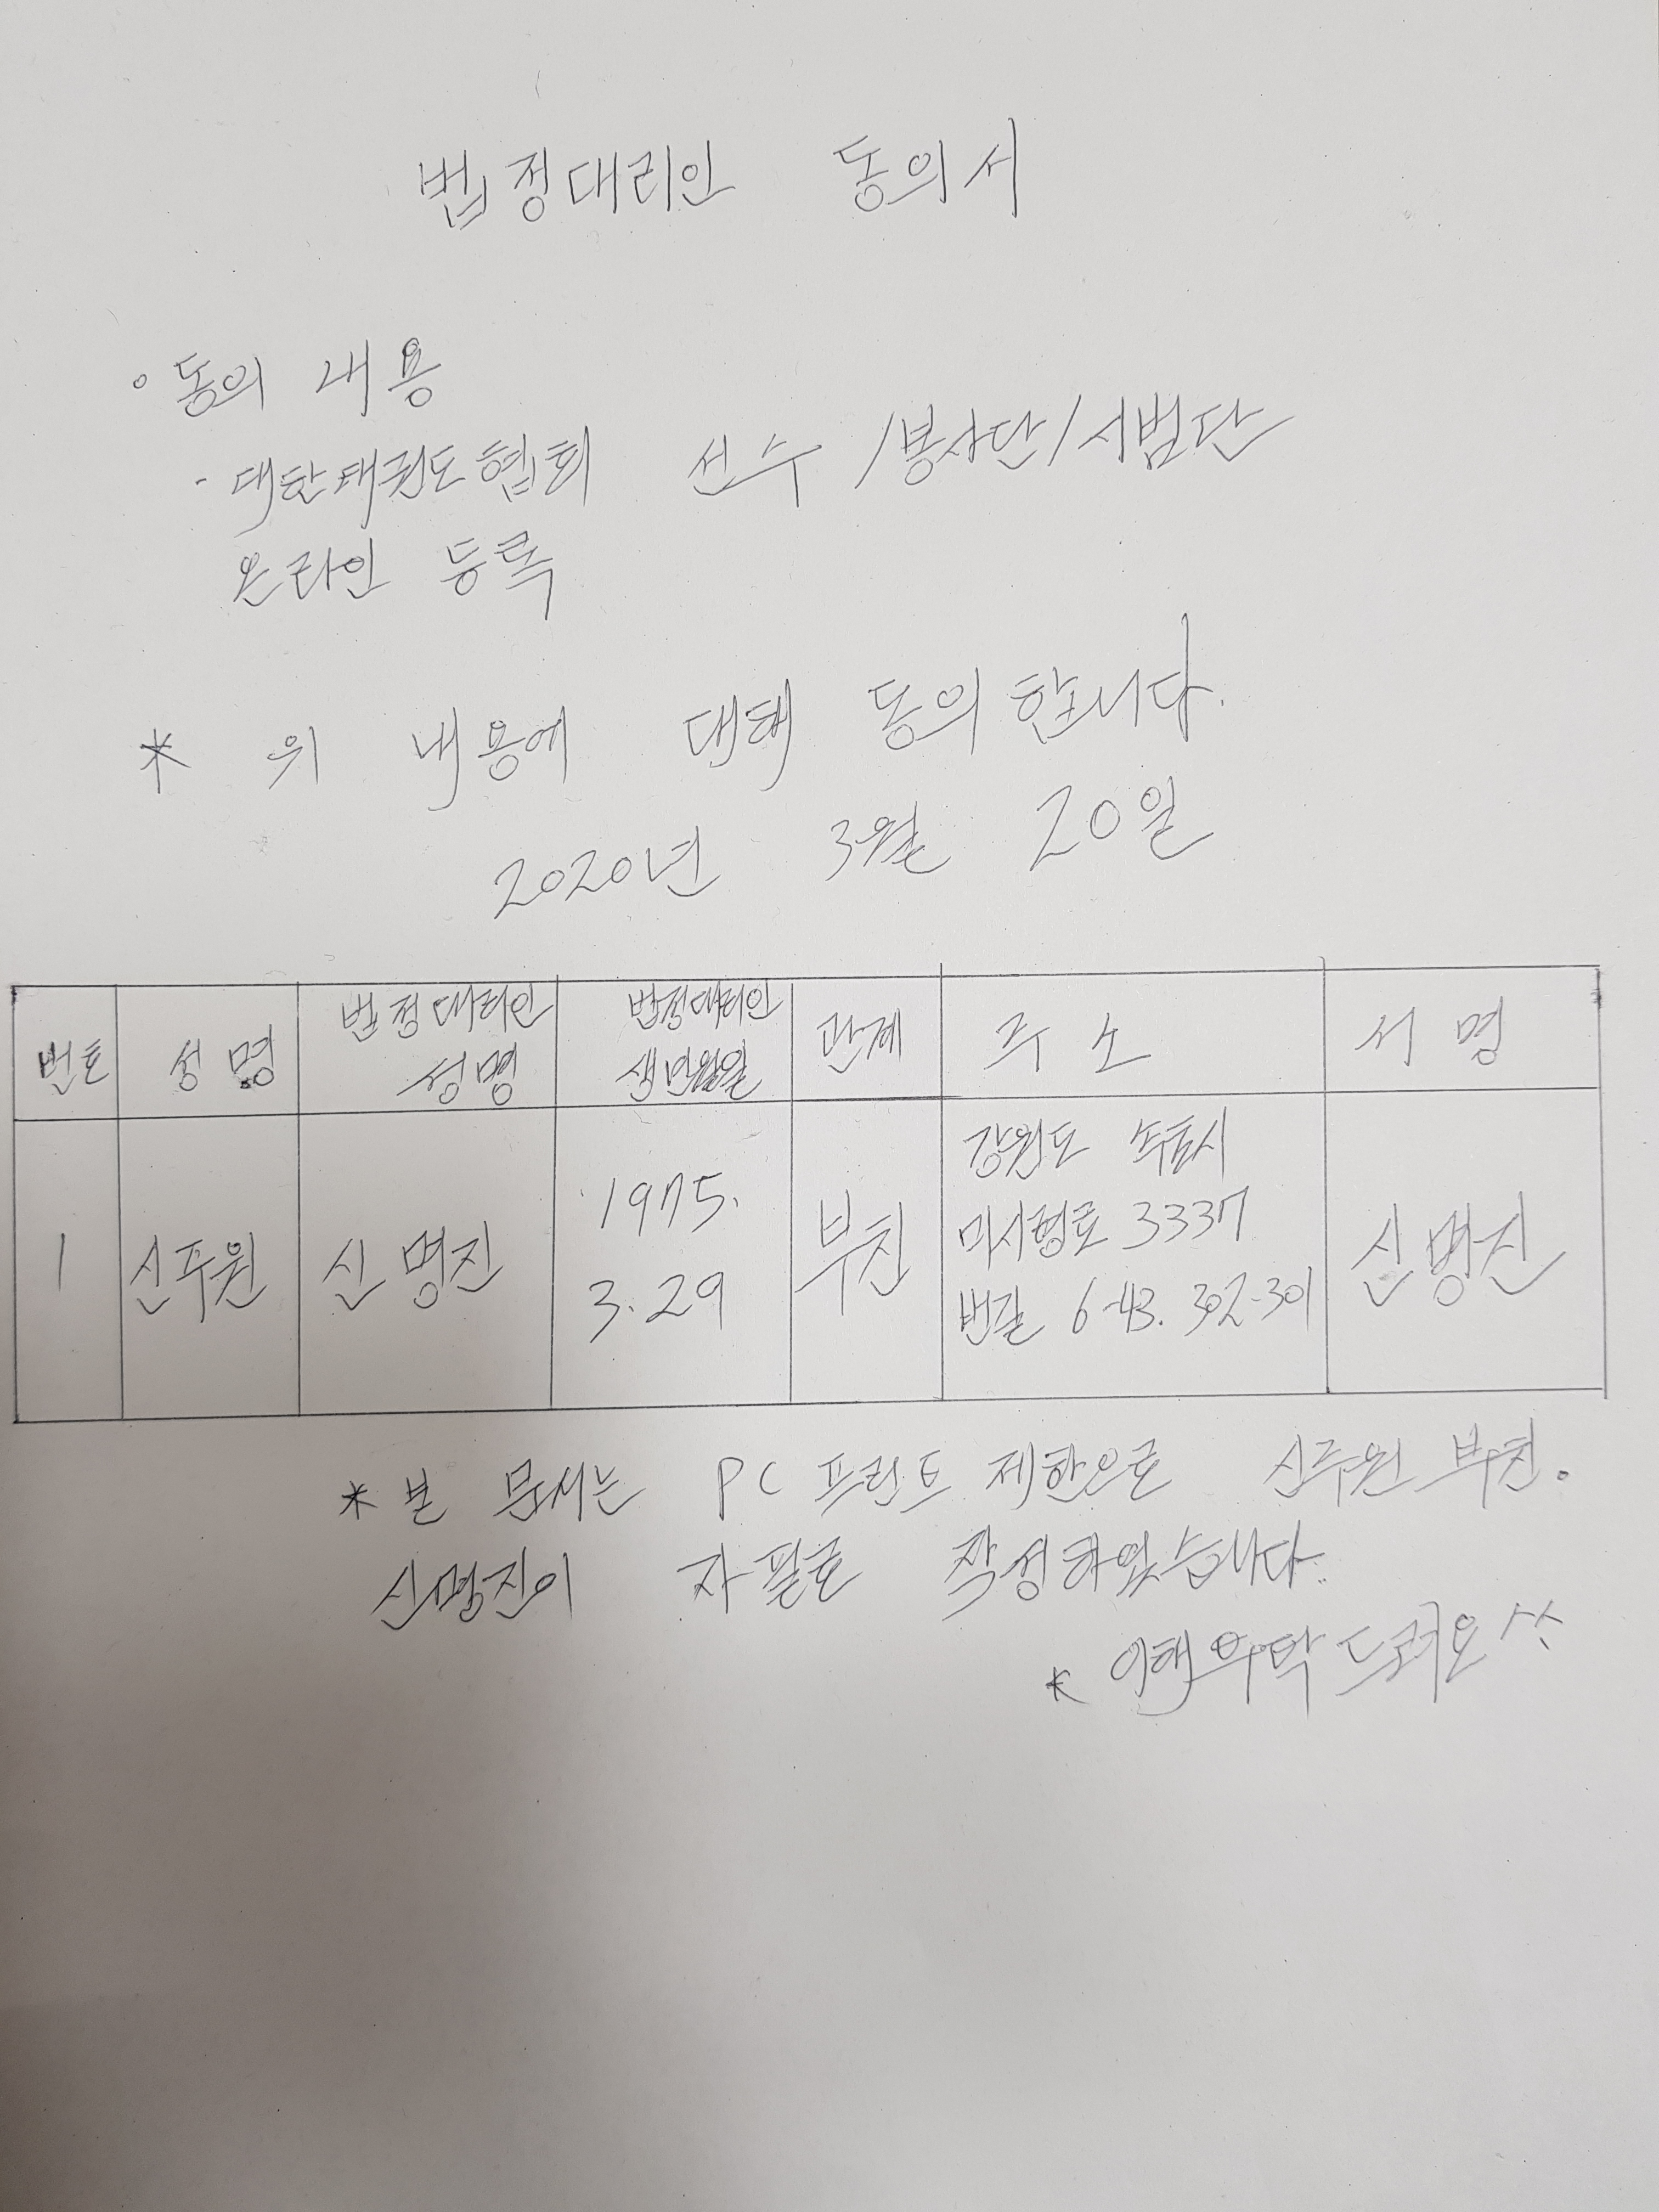 법정대리인 동의서
◦ 동의 내용
- 대한태권도협회 선수/봉사단/시범단
온라인 등록
* 위 내용에 대해 동의합니다.
2020년 3월 20일
번호 성명 법정대리인 성명 법정대리인 생년월일 관계 주소 서명
1 신주원 신명진 1975. 3.29 부친 강원도 속초시 미시령로 3337 번길 6-43. 302-301 신명진
* 본 문서는 PC 프린트 제한으로 신주원 부친.
신명진이 자필로 작성하였습니다.
* 이해 부탁 드려요^^